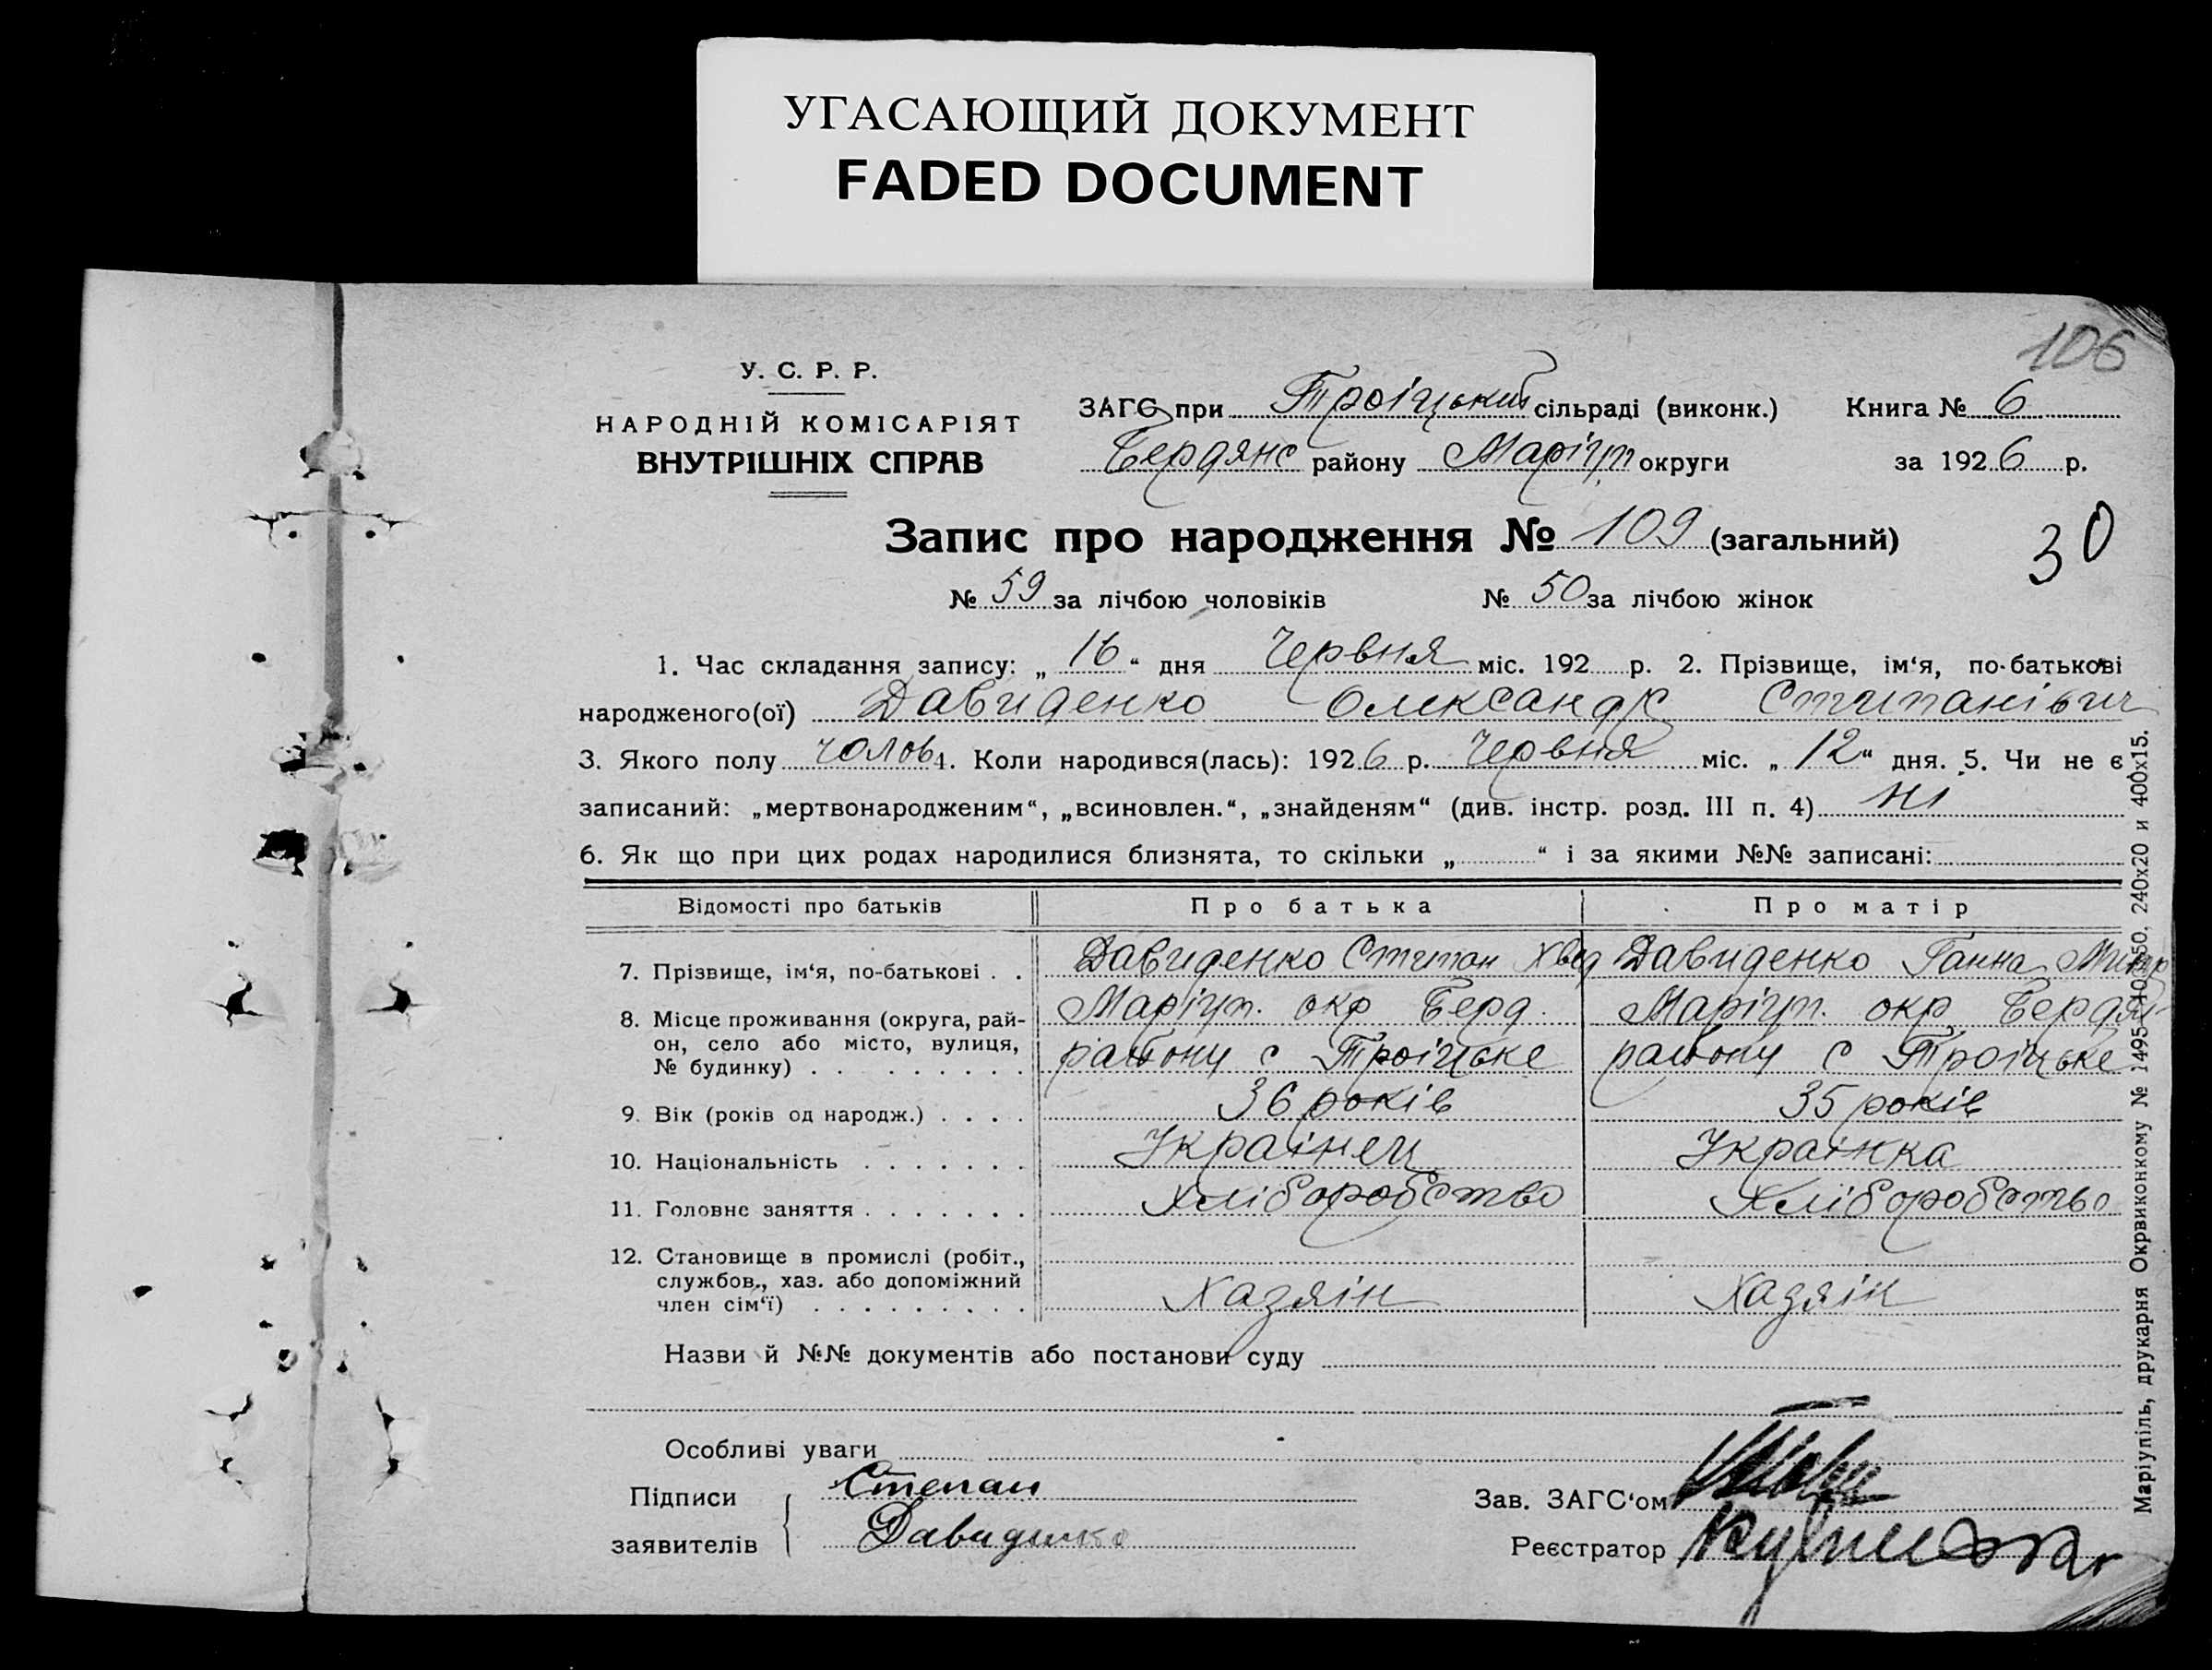 УГАСАЮЩИЙ ДОКУМЕНТ
FADED DOCUMENT
106
У. С. Р. Р.
НАРОДНІЙ КОМІСАРІЯТ
ВНУТРІШНІХ СПРАВ
ЗАГС при Троіцький сільраді (виконк.) Книга № 6
Бердянс району Маріуп округи за 1926 р.
Запис про народження № 109 (загальний)
30
№ 59 за лічбою чоловіків № 50 за лічбою жінок
1. Час складання запису: „ 16 “ дня Червня міс. 192 р. 2. Прізвище, ім‘я, по-батькові
народженого(ої) Давиденко Олександр Стипанівич
3. Якого полу чолов 4. Коли народився(лась): 1926 р. Червня міс. „ 12 “ дня. 5. Чи не є
записаний: „мертвонародженим“, „всиновлен.“, „знайденям“ (див. інстр. розд. III п. 4) ні
6. Як що при цих родах народилися близнята, то скільки „ “ і за якими №№ записані:
Відомості про батьків Про батька Про матір
7. Прізвище, ім‘я, по-батькові . . Давиденко Стипан Хвед Давиденко Ганна
8. Місце проживання (округа, рай- Маріуп. окр Берд. Маріуп. окр Бердян
он, село або місто, вулиця, району с Троіцьке району с Троіцьке
№ будинку) . . . . . . . . .
9. Вік (років од народж.) . . . . 36 років 35 років
10. Національність . . . . . . . Украінец Украінка
11. Головне заняття . . . . . . . Хліборобство Хліборобство
12. Становище в промислі (робіт.,
службов., хаз. або допоміжний
член сім‘ї) . . . . . . . . . Хазяін Хазяін
Назви й №№ документів або постанови суду
Особливі уваги
Підписи Степан Зав. ЗАГС‘ом
заявителів Давиденко Реєстратор
Маріупіль, друкарня Окрвиконкому № 1495-10050. 240x20 и 400x15.